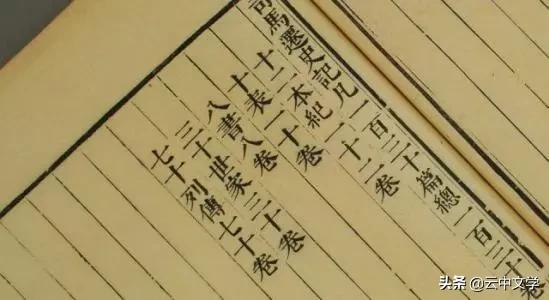 司馬遷史記凡一百三十篇總一百三十卷
十二本紀一十二卷
十表一十卷
八書八卷
三十世家三十卷
七十列傳七十卷
头条 @云中文学